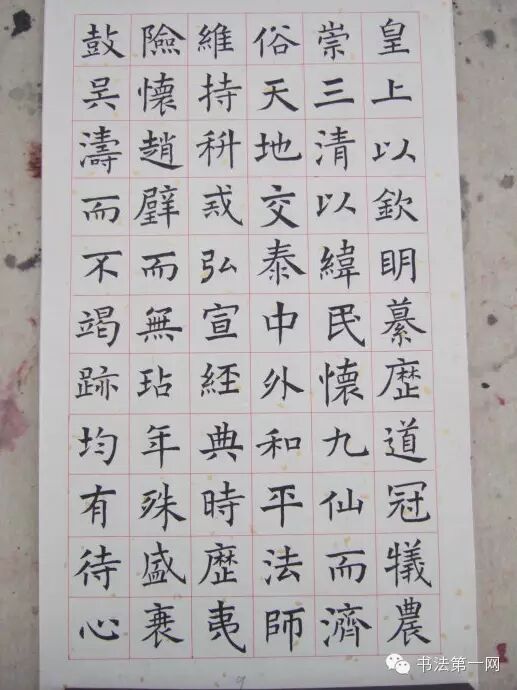 皇上以欽明纂歷道冠犧農
崇三清以緯民懷九仙而濟
俗天地交泰中外和平法師
維持科戒弘宣經典時歷夷
險懷趙璧而無玷年殊盛衰
鼓吳濤而不竭跡均有待心
9
书法第一网